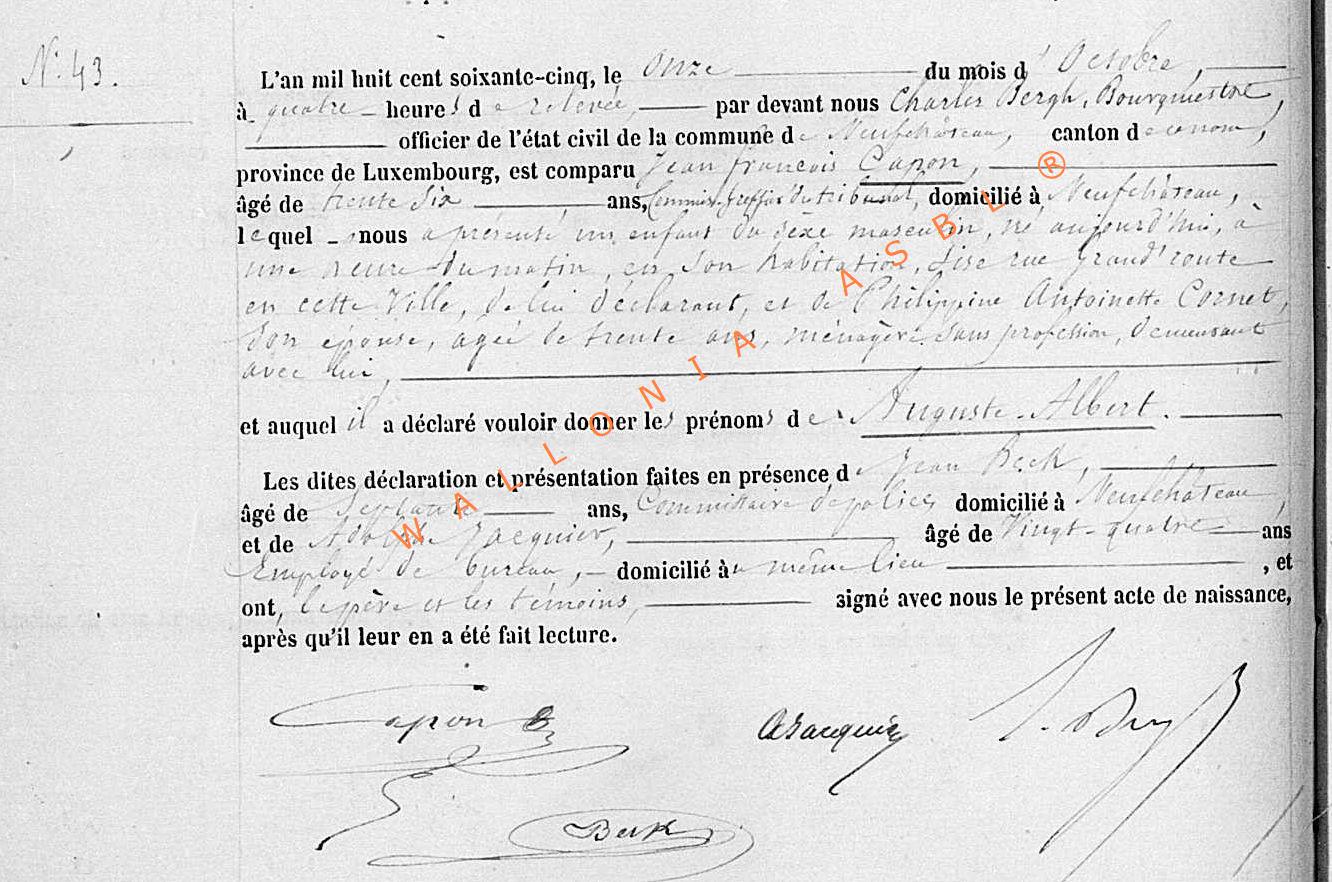 N° 43.
L'an mil huit cent soixante-cinq, le onze du mois d'Octobre,
à quatre heures de relevée, par devant nous Charles Bergh, Bourgmestre,
officier de l'état civil de la commune de Neufchâteau, canton de ce nom,
province de Luxembourg, est comparu Jean François Capon,
âgé de trente six ans, Commis-greffier du tribunal, domicilié à Neufchâteau,
lequel nous a présenté un enfant du sexe masculin, né aujourd'hui, à
une heure du matin, en son habitation, sise rue grand'route
en cette Ville, de lui déclarant, et de Philippine Antoinette Cornet,
son épouse, agée de trente ans, ménagère, sans profession, demeurant
avec lui,
et auquel il a déclaré vouloir donner les prénoms de Auguste-Albert.
Les dites déclaration et présentation faites en présence de Jean Beck,
âgé de Septante ans, Commissaire de police domicilié à Neufchâteau,
et de Adolphe Jacquier, âgé de Vingt-quatre ans
Employé de bureau, domicilié au même lieu, et
ont, le père et les témoins, signé avec nous le présent acte de naissance,
après qu'il leur en a été fait lecture.
Capon
AJacquier
Beck
WALLONIA ASBL ®